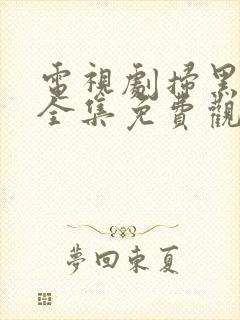 電視劇掃黑
全集免費觀
夢回東夏